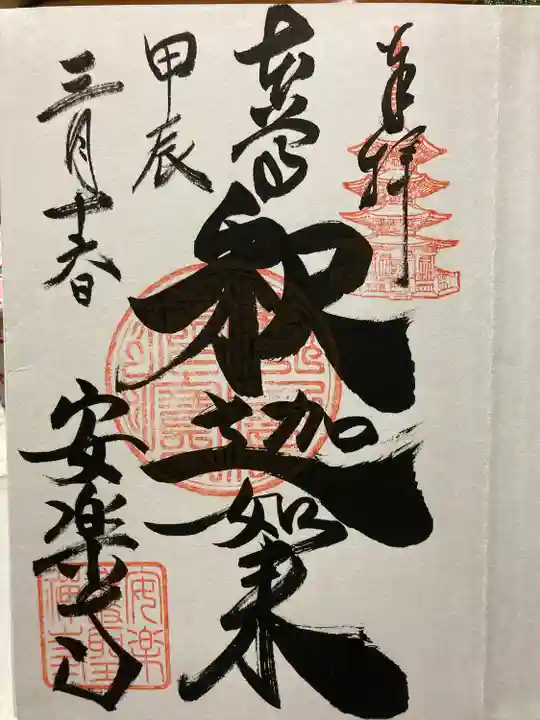 奉拝
本尊
釈迦如来
甲辰
三月十春
安楽寺